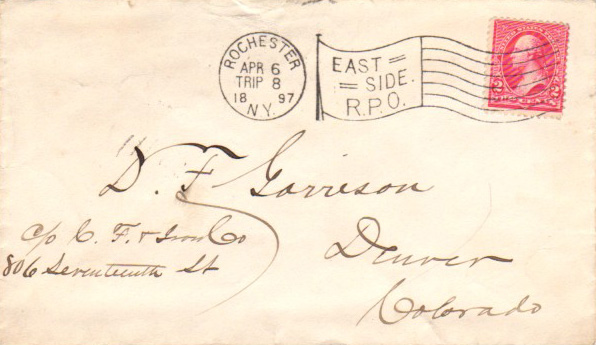 ROCHESTER
APR 6
TRIP 8
18 97
N.Y.
EAST
SIDE.
R.P.O.
2 2
TWO CENTS
D. F. Garrison
c/o C. F. & Iron Co
806 Seventeenth St
Denver
Colorado